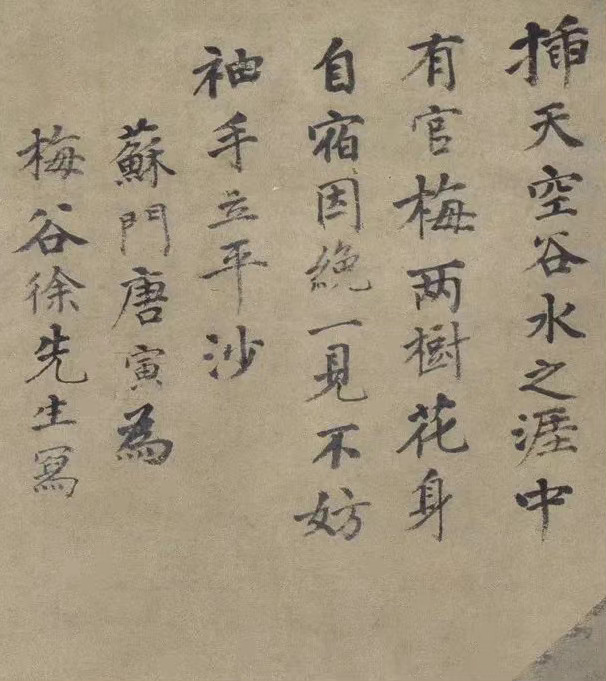 插天空谷水之涯中
有官梅两樹花身
自宿因絶一見不妨
袖手立平沙
蘇門唐寅為
梅谷徐先生寫